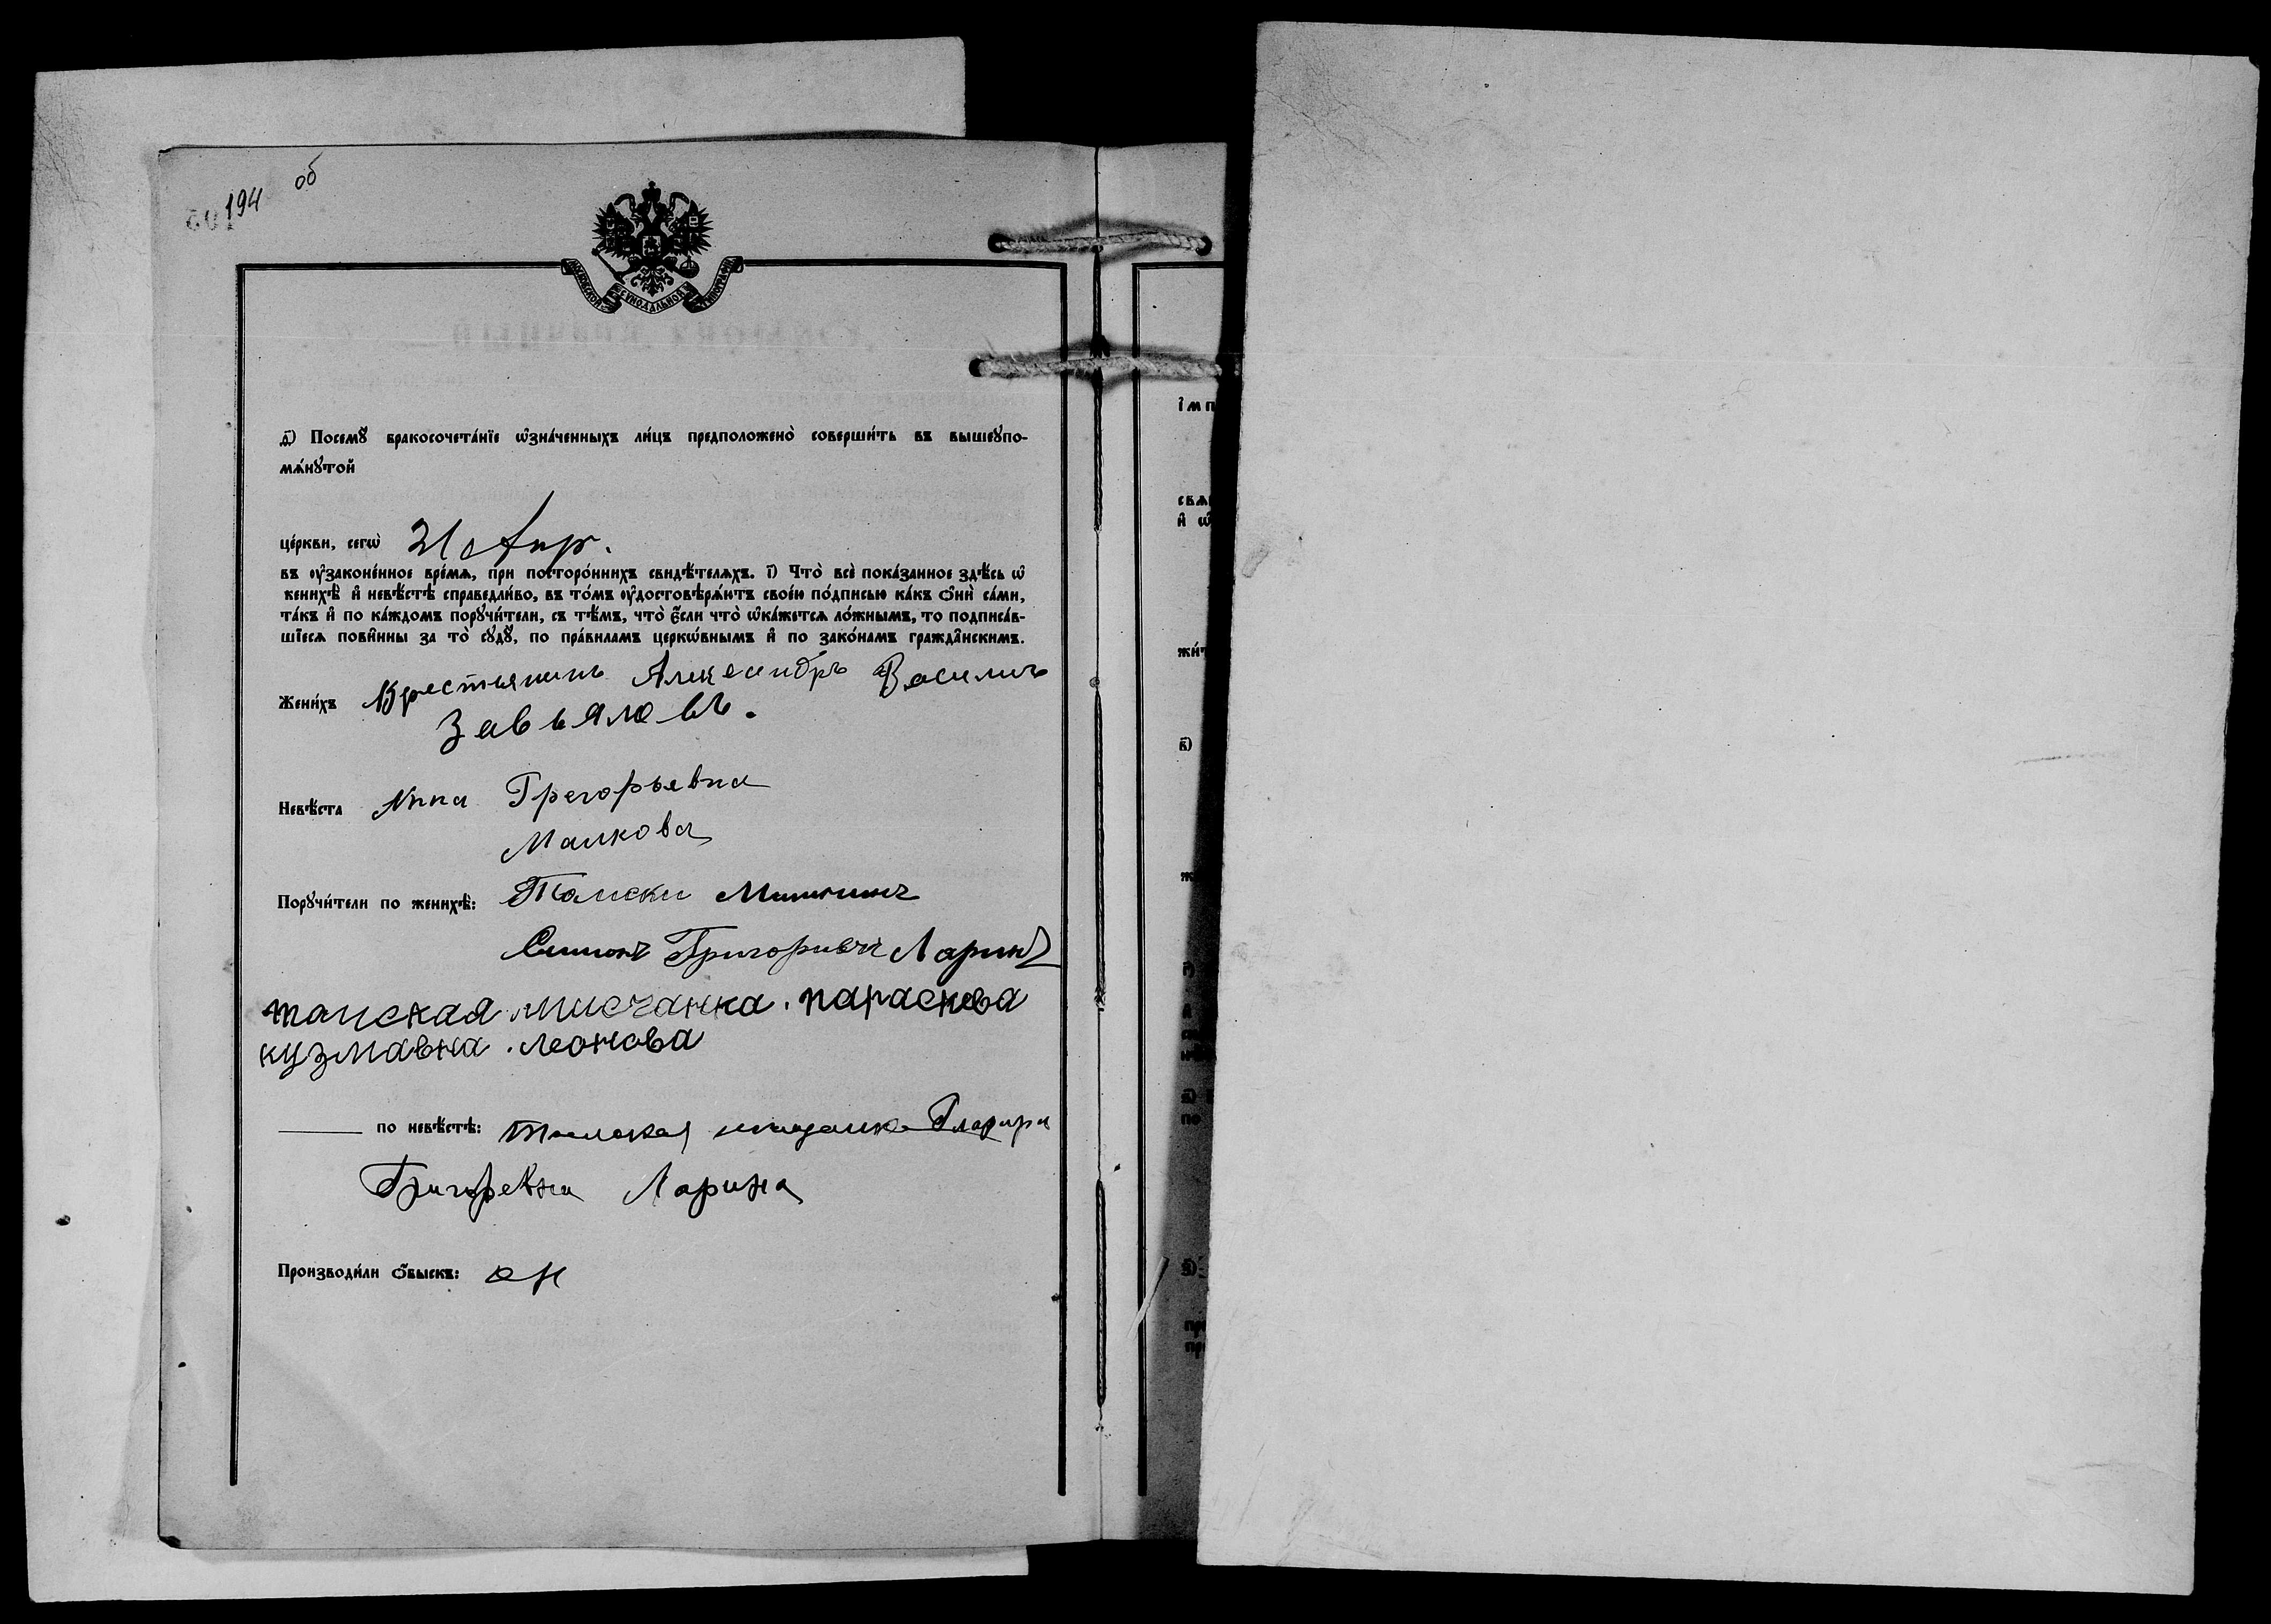 194 об
МОСКОВСКОЙ СѴНОДАЛЬНОЙ ТИПОГРАФІИ
д҃і) Посемꙋ̀ бракосочета́нїе ѡ҆зна́ченныхъ ли́цъ предположено̀ соверши́ть въ вышеꙋпо-
мѧ́нꙋтой
це́ркви, сегѡ̀ 21 Апр.
въ ᲂу҆зако́ненное вре́мѧ, при посторо́ннихъ свидѣ́телѧхъ. і҃) Что̀ всѐ пока́занное здѣ́сь ѡ҆
женихѣ̀ и҆ невѣ́стѣ справедли́во, въ то́мъ ᲂу҆достовѣрѧ́ютъ свое́ю по́дписью ка́къ ѻ҆нѝ са́ми,
та́къ и҆ по ка́ждомъ порꙋчи́тели, съ тѣ́мъ, что̀ є҆́сли что̀ ѡ҆ка́жетсѧ ло́жнымъ, то подписа́в-
шїесѧ пови́нны за то̀ сꙋдꙋ̀, по пра́виламъ церкѡ́внымъ и҆ по зако́намъ гражда́нскимъ.
Жени́хъ Крестьянинъ Александръ Василич
Завьяловъ.
Невѣ́ста Нина Грегорьевна
Малкова
Порꙋчи́тели по женихѣ̀: Томски
Симонъ Григориевич Ларинъ
томская мисчанка. параскева
кузмавна. леонова
по невѣ́стѣ: Томская мещанка Глафира
Григоревна Ларина
Производи́ли ѻ҆́быскъ: